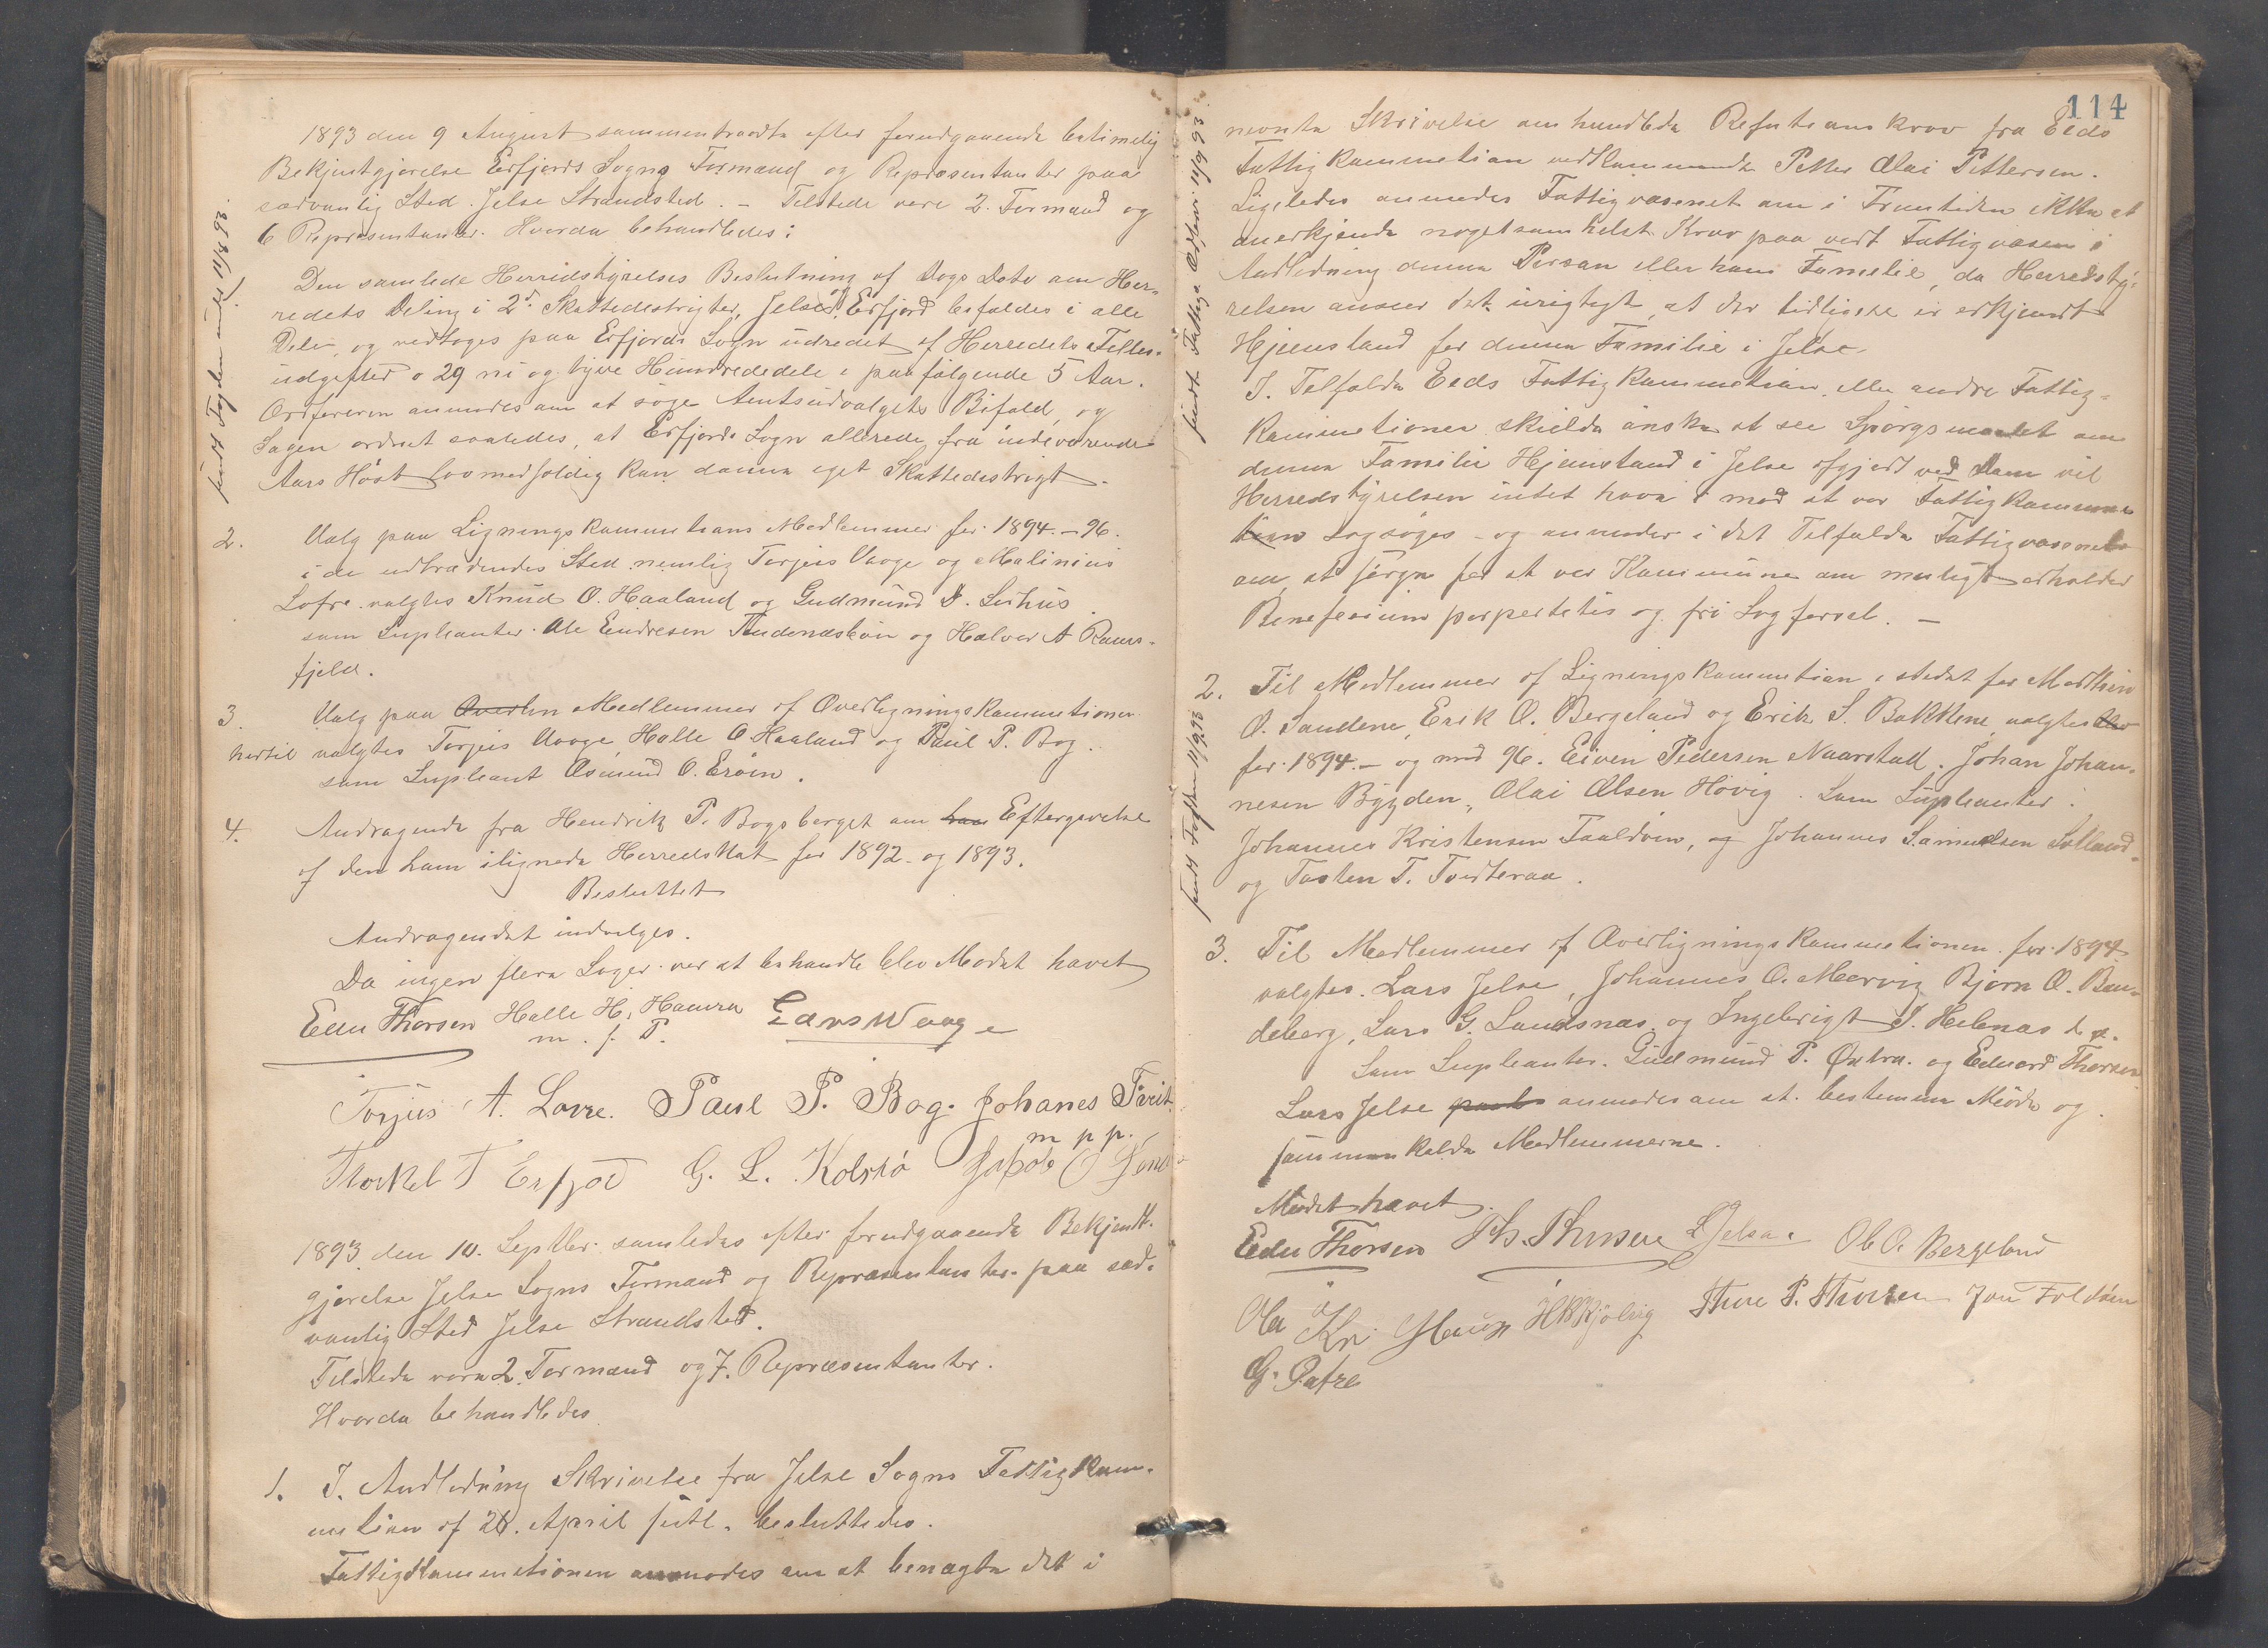 1893 den 9 August sammentraadte efter forudgaaende betimelig
Bekjentgjørelse Erfjords Sogns Formænd og Repræsentanter paa
sædvanlig Sted. Jelse Strandsted. – Tilstede vare 2. Formænd og
6 Repræsentanter. Hvorda behandledes:
Den samlede Herredstyrelses Beslutning af Dags Dato om Her-
redets Deling i 2de Skattedestrigter, Jelse og Erfjord bifaldes i alle
Dele, og vedtoges paa Erfjords Sogn udredet af Herredets Felles-
udgifter 29 ni og tyve Hundrededele i paafølgende 5 Aar.
Ordføreren anmodes om at søge Amtsudvalgets Bifald, og
Sagen ordnet saaledes, at Erfjords Sogn allerede fra indeværende
Aars Høst lovmedholdig kan danne eget Skattedestrigt.
sendt Fogden 11/8 93.
2. Valg paa Ligningskommitions Medlemmer for 1894.–96.
i de udtrædendes Sted nemlig Torjeis Vaage og Malinius
Lofre. valgtes Knud O. Haaland og Gudmund S. Søhus.
som Supleanter. Ole Endresen Tindenæsløin og Halvor A Rams-
fjeld.
3. Valg paa Medlemmer af Overligningskommitionen
hertil valgtes Torjeis Vaage, Halle O Haaland og Paul P. Bog.
som Supleant Asmund O. Erøen.
4. Andragende fra Hendrik P. Bogsberget om Eftergivelse
af den ham ilignede Herredskat for 1892 og 1893.
Besluttet
Andragendet indvilges.
Da ingen flere Sager var at behandle blev Mødet hævet
Edu Thorsen Halle H. Hamra Lars Waage
m. f. P.
Torjeis A. Lovre. Paul P. Bog. Johanes Tveit
m p p.
Thorkel T Erfjord G. L. Kolbrø Jakob O
1893 den 10. Septbr. samledes efter forudgaaende Bekjendt-
gjørelse Jelse Sogns Formænd og Repræsentanter paa sæd-
vanlig Sted Jelse Strandsted.
Tilstede vare 2. Formænd og 7. Repræsentanter.
Hvorda behandledes
1. I. Anledning Skrivelse fra Jelse Sogns Fattigkom-
mition af 26. April sidtl. besluttedes.
Fattigkommitionen anmodes om at benægte det i
114
nevnte Skrivelse omhandlede Refutionskrav fra Eids
Fattigkommetion vedkommende Petter Olai Pettersen.
Ligeledes anmodes Fattigvæsenet om i Fremtiden ikke at
anerkjende nogetsomhelst Krav paa vort Fattigvæsen i
Andledning denne Person eller hans Familie, da Herredsty-
relsen anseer det urigtigt, at der tidligere er erkjendt
Hjemstand for denne Familie i Jelse.
I. Tilfælde Eids Fattigkommetion, eller andre Fattig-
kommetioner skulde ønske at see Spørgsmaalet om
denne Familie Hjemstand i Jelse afgjort ved Dom vil
Herredstyrelsen intet have i mod at vor Fattigkomme-
tion sagsøges – og anmoder i det Tilfælde Fattigvæsenet
om, at sørge for at vor Kommune om muligt erholder
Benefesium porpertetis og fri Sagførsel. –
sendt Fattigv. Ordfører 11/9 93.
2. Til Medlemmer af Ligningskommetion i stedet for Mathias
O. Sandene, Erik O. Bergeland og Erik S. Bakkene valgtes
for 1894.– og med 96. Eiven Pedersen Naarstad. Johan Johan-
nesen Bygden, Olai Olsen Høvig. Som Supleanter:
Johannes Kristensen Foldøen, og Johannes Samuelsen Solland
og Tosten T. Tvedteraa.
sendt Fogden 11/9 93
3. Til Medlemmer af Overligningskommetionen for 1894
valgtes. Lars Jelse, Johannes O. Mærvig Bjørn O. Ban-
deberg, Lars G. Sandsnæs. og Ingebrigt J. Hebnæs
Som Supleanter. Gudmund P. Østre. og Eduard Thorsen.
Lars Jelse anmodes om at bestemme Møde og
sammenkalde Medlemmerne.
Mødet hævet.
Edu Thorsen Ths. Thorsen LJelse. Ole O. Bergeland
Ole Kr. Haug HKKjølvig Thore P. Thorsen Jon Foldøen
G. Østre